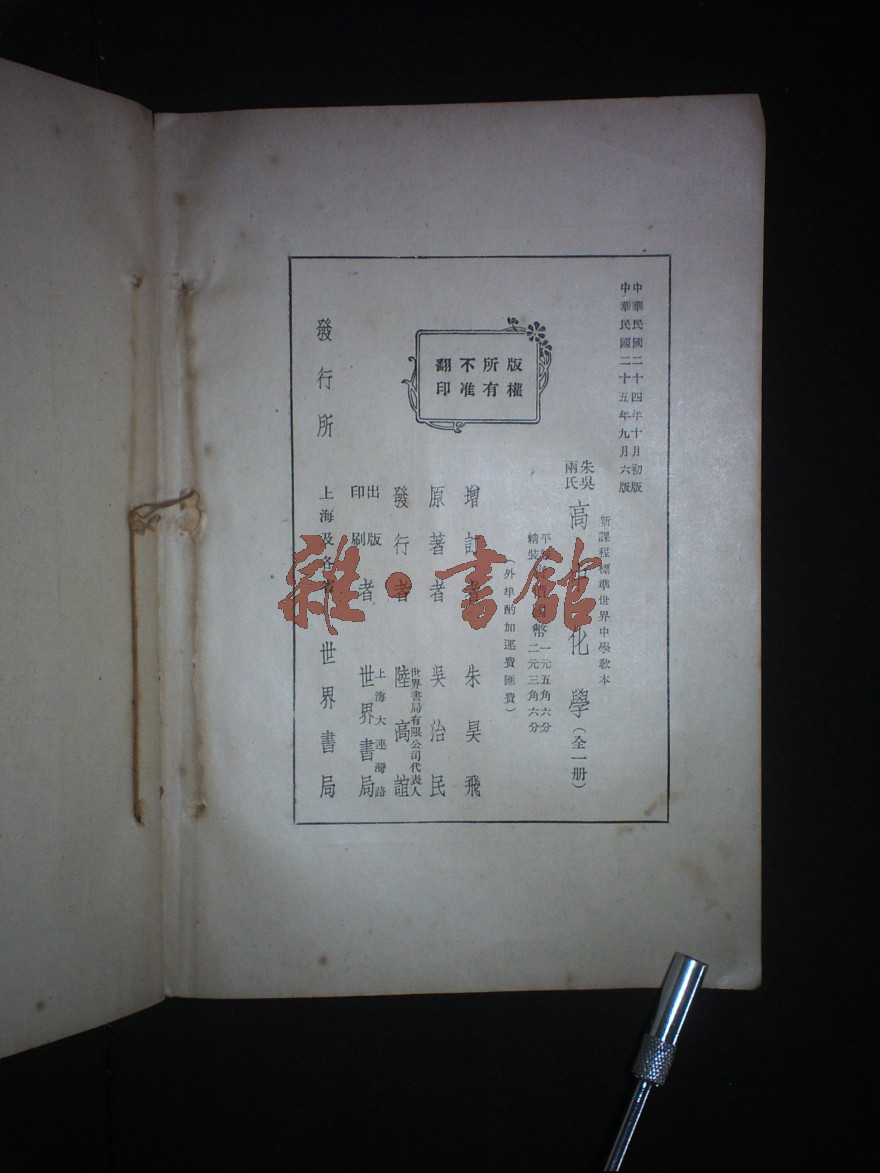 中華民國二十四年十月初版
中華民國二十五年九月六版
新課程標準世界中學教本
朱吳兩氏
高中化學（全一冊）
平裝 幣一元五角六分
精裝 二元三角六分
（外埠酌加運費匯費）
版權所有
不准翻印
增訂者 朱昊飛
原著者 吳治民
世界書局有限公司代表人
發行者 陸高誼
出版印刷者 上海大連灣路 世界書局
發行所 上海及各省 世界書局
雜·書館